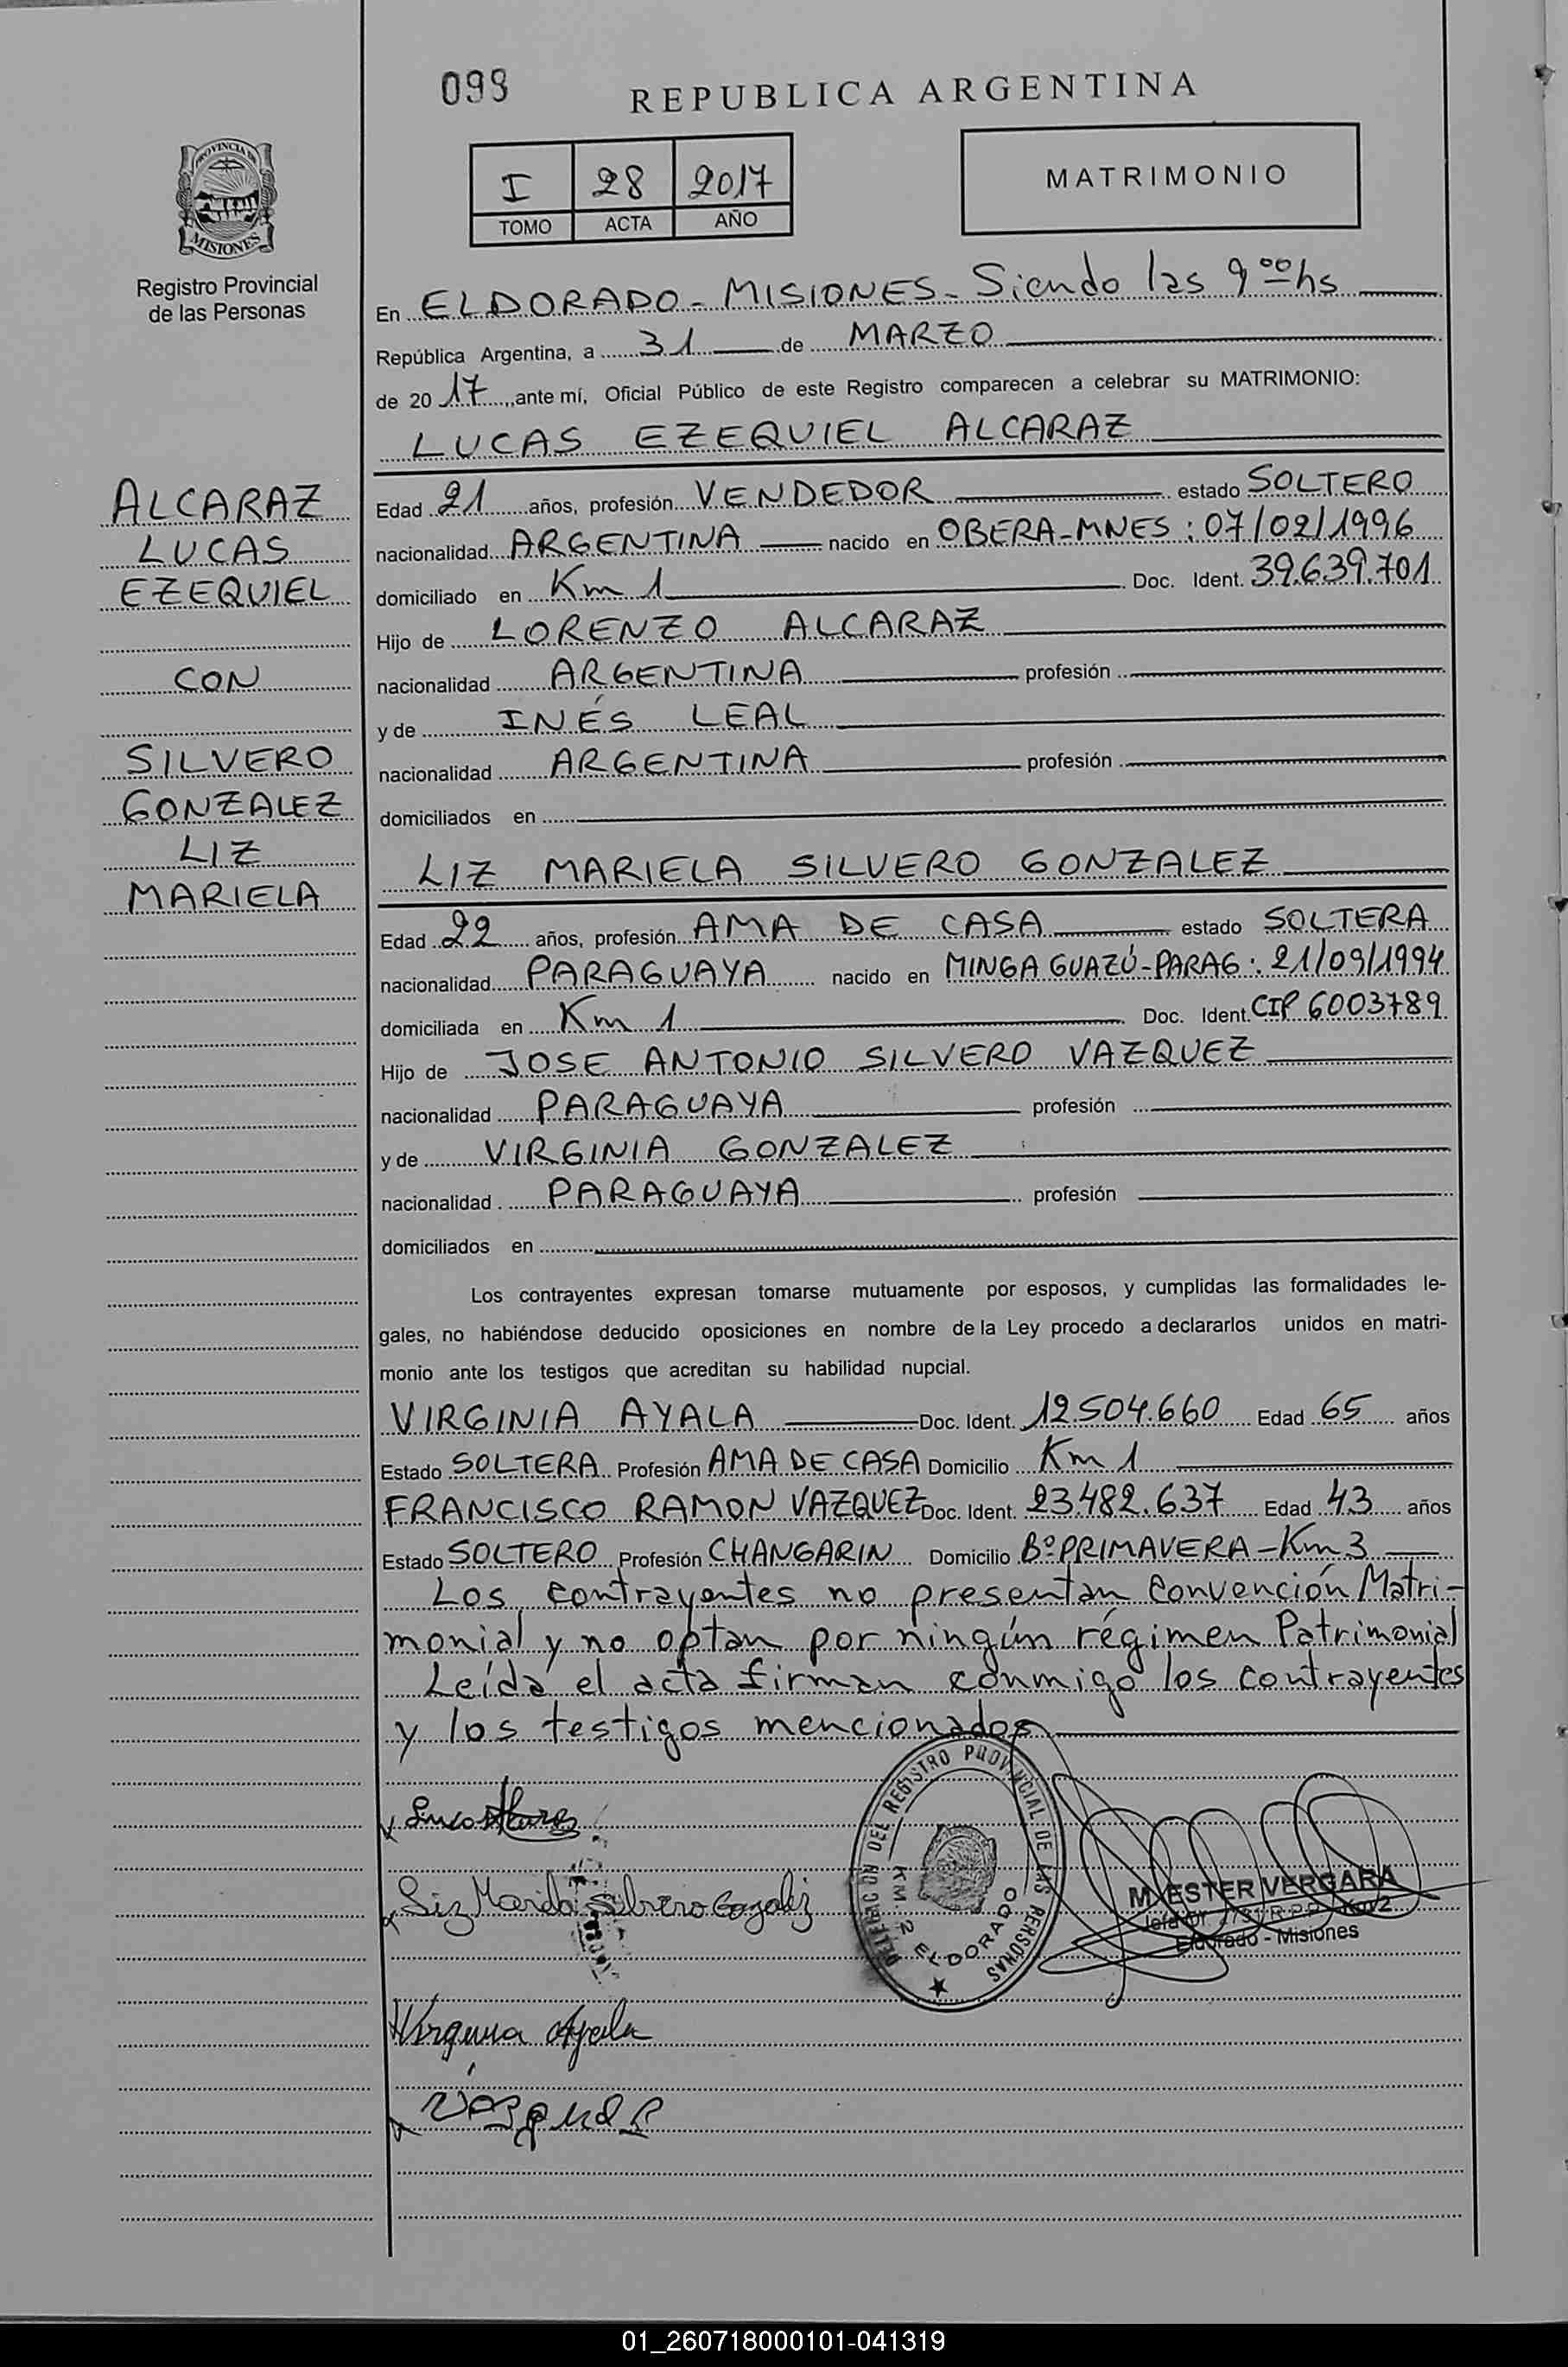 099
REPUBLICA ARGENTINA
PROVINCIA DE
MISIONES
Registro Provincial
de las Personas
I 28 2017
TOMO ACTA AÑO
MATRIMONIO
En ELDORADO - MISIONES - Siendo las 9 00 hs
República Argentina, a 31 de MARZO
de 20 17, ante mí, Oficial Público de este Registro comparecen a celebrar su MATRIMONIO:
LUCAS EZEQUIEL ALCARAZ
ALCARAZ
LUCAS
EZEQUIEL
CON
SILVERO
GONZALEZ
LIZ
MARIELA
Edad 21 años, profesión VENDEDOR estado SOLTERO
nacionalidad ARGENTINA nacido en OBERA-MNES: 07/02/1996
domiciliado en Km 1 Doc. Ident. 39.639.701
Hijo de LORENZO ALCARAZ
nacionalidad ARGENTINA profesión
y de INÉS LEAL
nacionalidad ARGENTINA profesión
domiciliados en
LIZ MARIELA SILVERO GONZALEZ
Edad 22 años, profesión AMA DE CASA estado SOLTERA
nacionalidad PARAGUAYA nacido en MINGA GUAZÚ-PARAG: 21/09/1994
domiciliada en Km 1 Doc. Ident. CIP 6003789
Hijo de JOSE ANTONIO SILVERO VAZQUEZ
nacionalidad PARAGUAYA profesión
y de VIRGINIA GONZALEZ
nacionalidad PARAGUAYA profesión
domiciliados en
Los contrayentes expresan tomarse mutuamente por esposos, y cumplidas las formalidades le-
gales, no habiéndose deducido oposiciones en nombre de la Ley procedo a declararlos unidos en matri-
monio ante los testigos que acreditan su habilidad nupcial.
VIRGINIA AYALA Doc. Ident. 12.504.660 Edad 65 años
Estado SOLTERA Profesión AMA DE CASA Domicilio Km 1
FRANCISCO RAMON VAZQUEZ Doc. Ident. 23.482.637 Edad 43 años
Estado SOLTERO Profesión CHANGARIN Domicilio Bº PRIMAVERA - Km 3
Los contrayentes no presentan Convención Matri-
monial y no optan por ningún régimen Patrimonial
Leída el acta firman conmigo los contrayentes
y los testigos mencionados
DEL REGISTRO PROVINCIAL DE LAS PERSONAS
KM. 2 ELDORADO
M. ESTER VERGARA
Eldorado - Misiones
Liz Mariela Silvero Gonzalez
Virginia Ayala
01_260718000101-041319